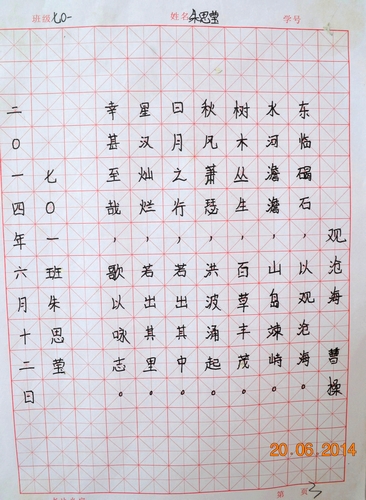 班级 七〇一 姓名 朱思莹 学号
观沧海 曹操
东临碣石，以观沧海。
水河澹澹，山岛竦峙。
树木丛生，百草丰茂。
秋风萧瑟，洪波涌起。
日月之行，若出其中。
星汉灿烂，若出其里。
幸甚至哉，歌以咏志。
七〇一班朱思莹
二〇一四年六月十二日
20.06.2014
第 页